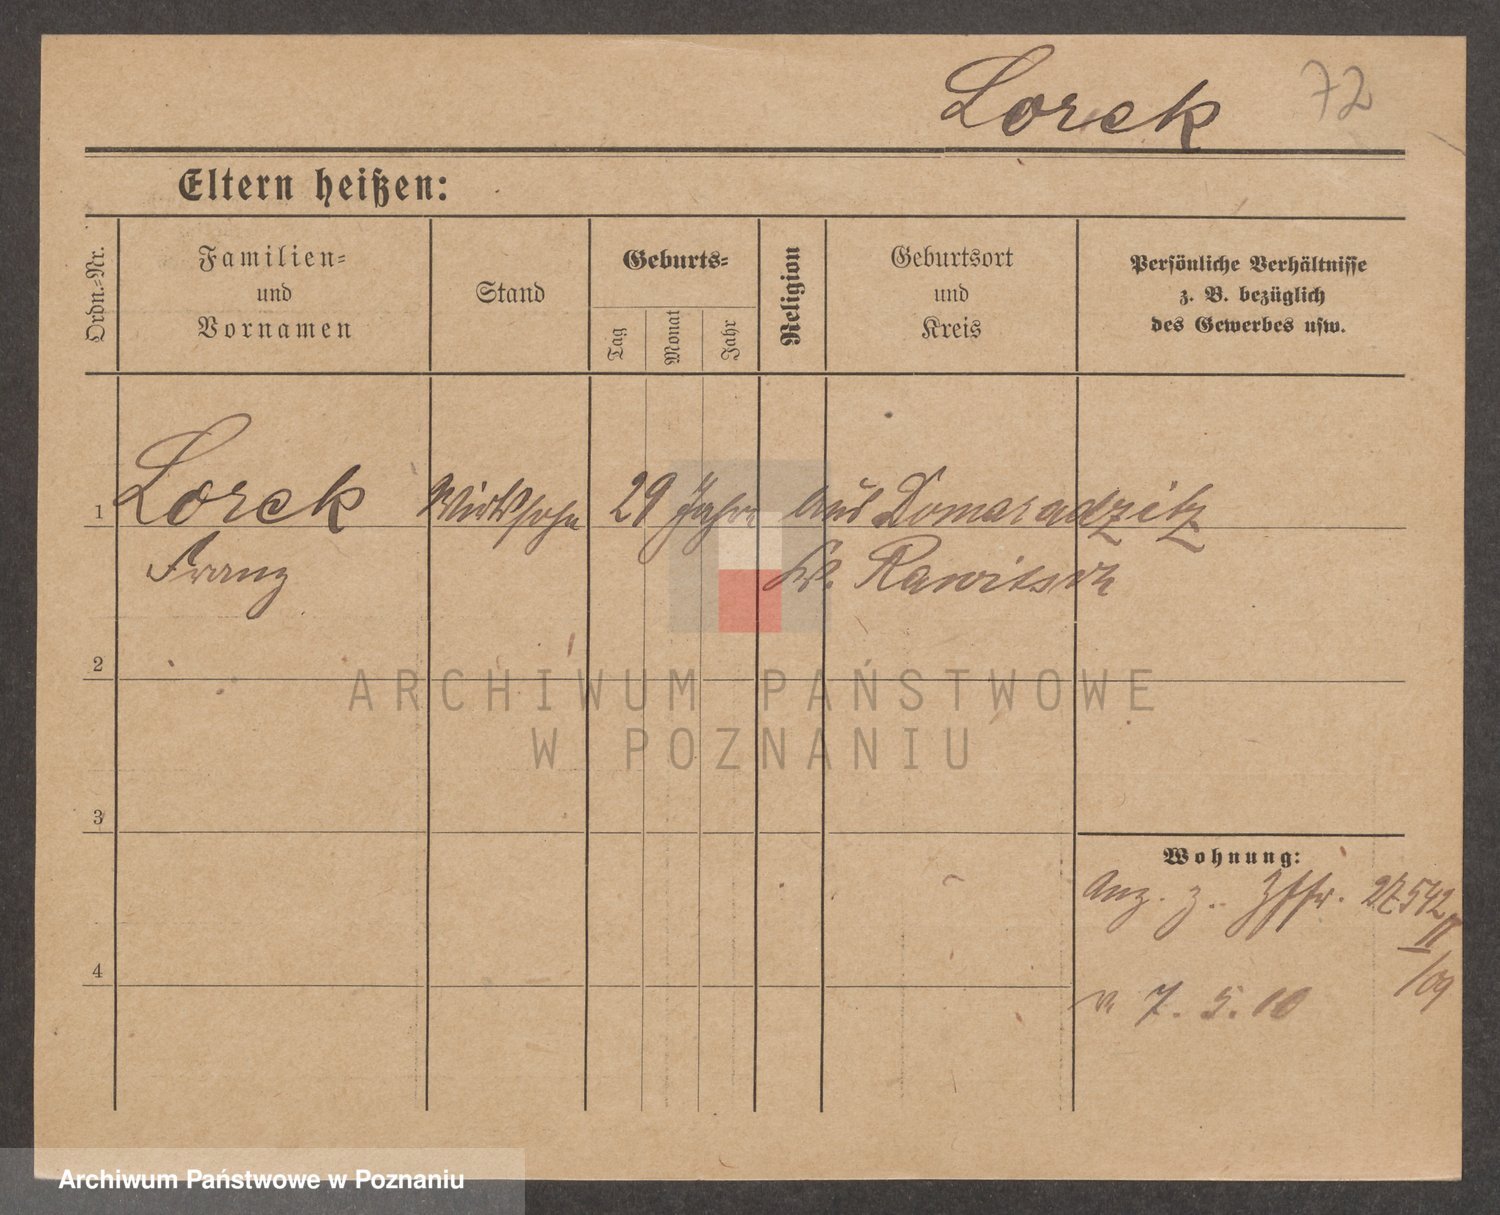 Lorek 72
Eltern heißen:
Ordn.-Nr.
Familien-
und
Vornamen
Stand
Geburts-
Tag
Monat
Jahr
Religion
Geburtsort
und
Kreis
Persönliche Verhältnisse
z. B. bezüglich
des Gewerbes usw.
1 Lorek Wirtssohn 29 Jahre aus Domaradzitz
Franz Kr. Rawitsch
2
3
4
Wohnung:
Anz. z. 27542
II
/09
v. 7. 5. 10
ARCHIWUM PAŃSTWOWE
W POZNANIU
Archiwum Państwowe w Poznaniu